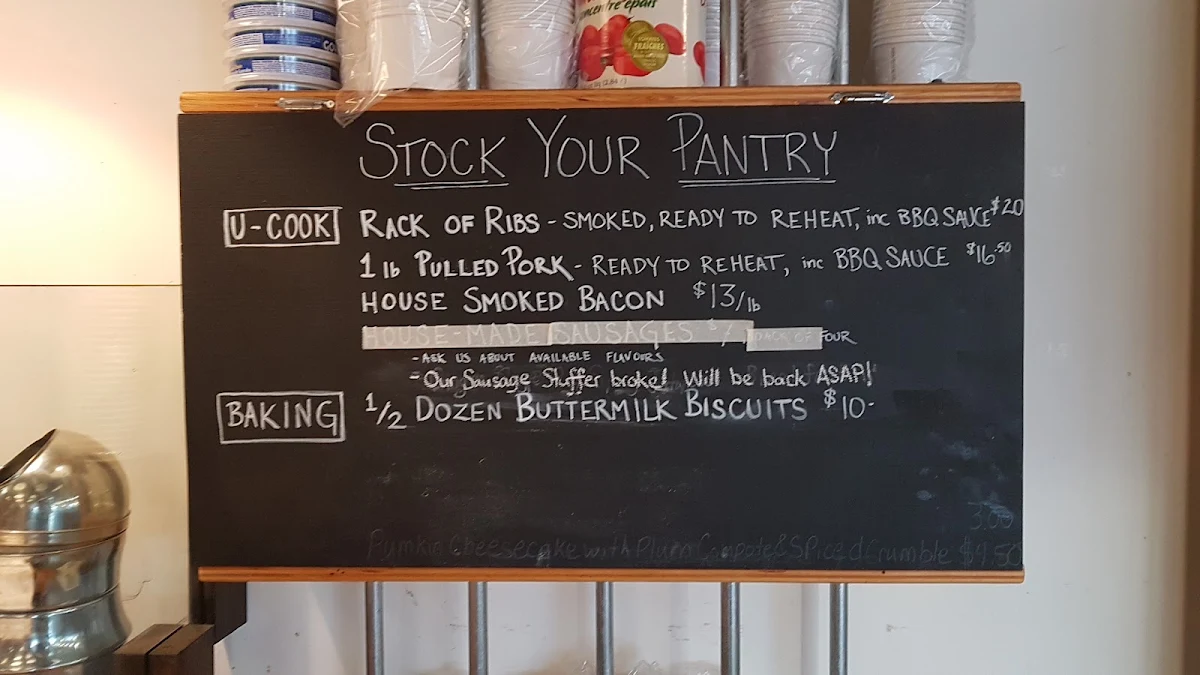 concentré épais
FRAÎCHES
STOCK YOUR PANTRY
U-COOK RACK OF RIBS - SMOKED, READY TO REHEAT, inc BBQ SAUCE $20
1 lb PULLED PORK - READY TO REHEAT, inc BBQ SAUCE $16.50
HOUSE SMOKED BACON $13/lb
HOUSE-MADE SAUSAGES $7/ PACK OF FOUR
- ASK US ABOUT AVAILABLE FLAVOURS
- Our Sausage Stuffer broke! Will be back ASAP!
BAKING 1/2 DOZEN BUTTERMILK BISCUITS $10-
3.00
Pumkin Cheesecake with Plum Compote & Spiced Crumble $4.50